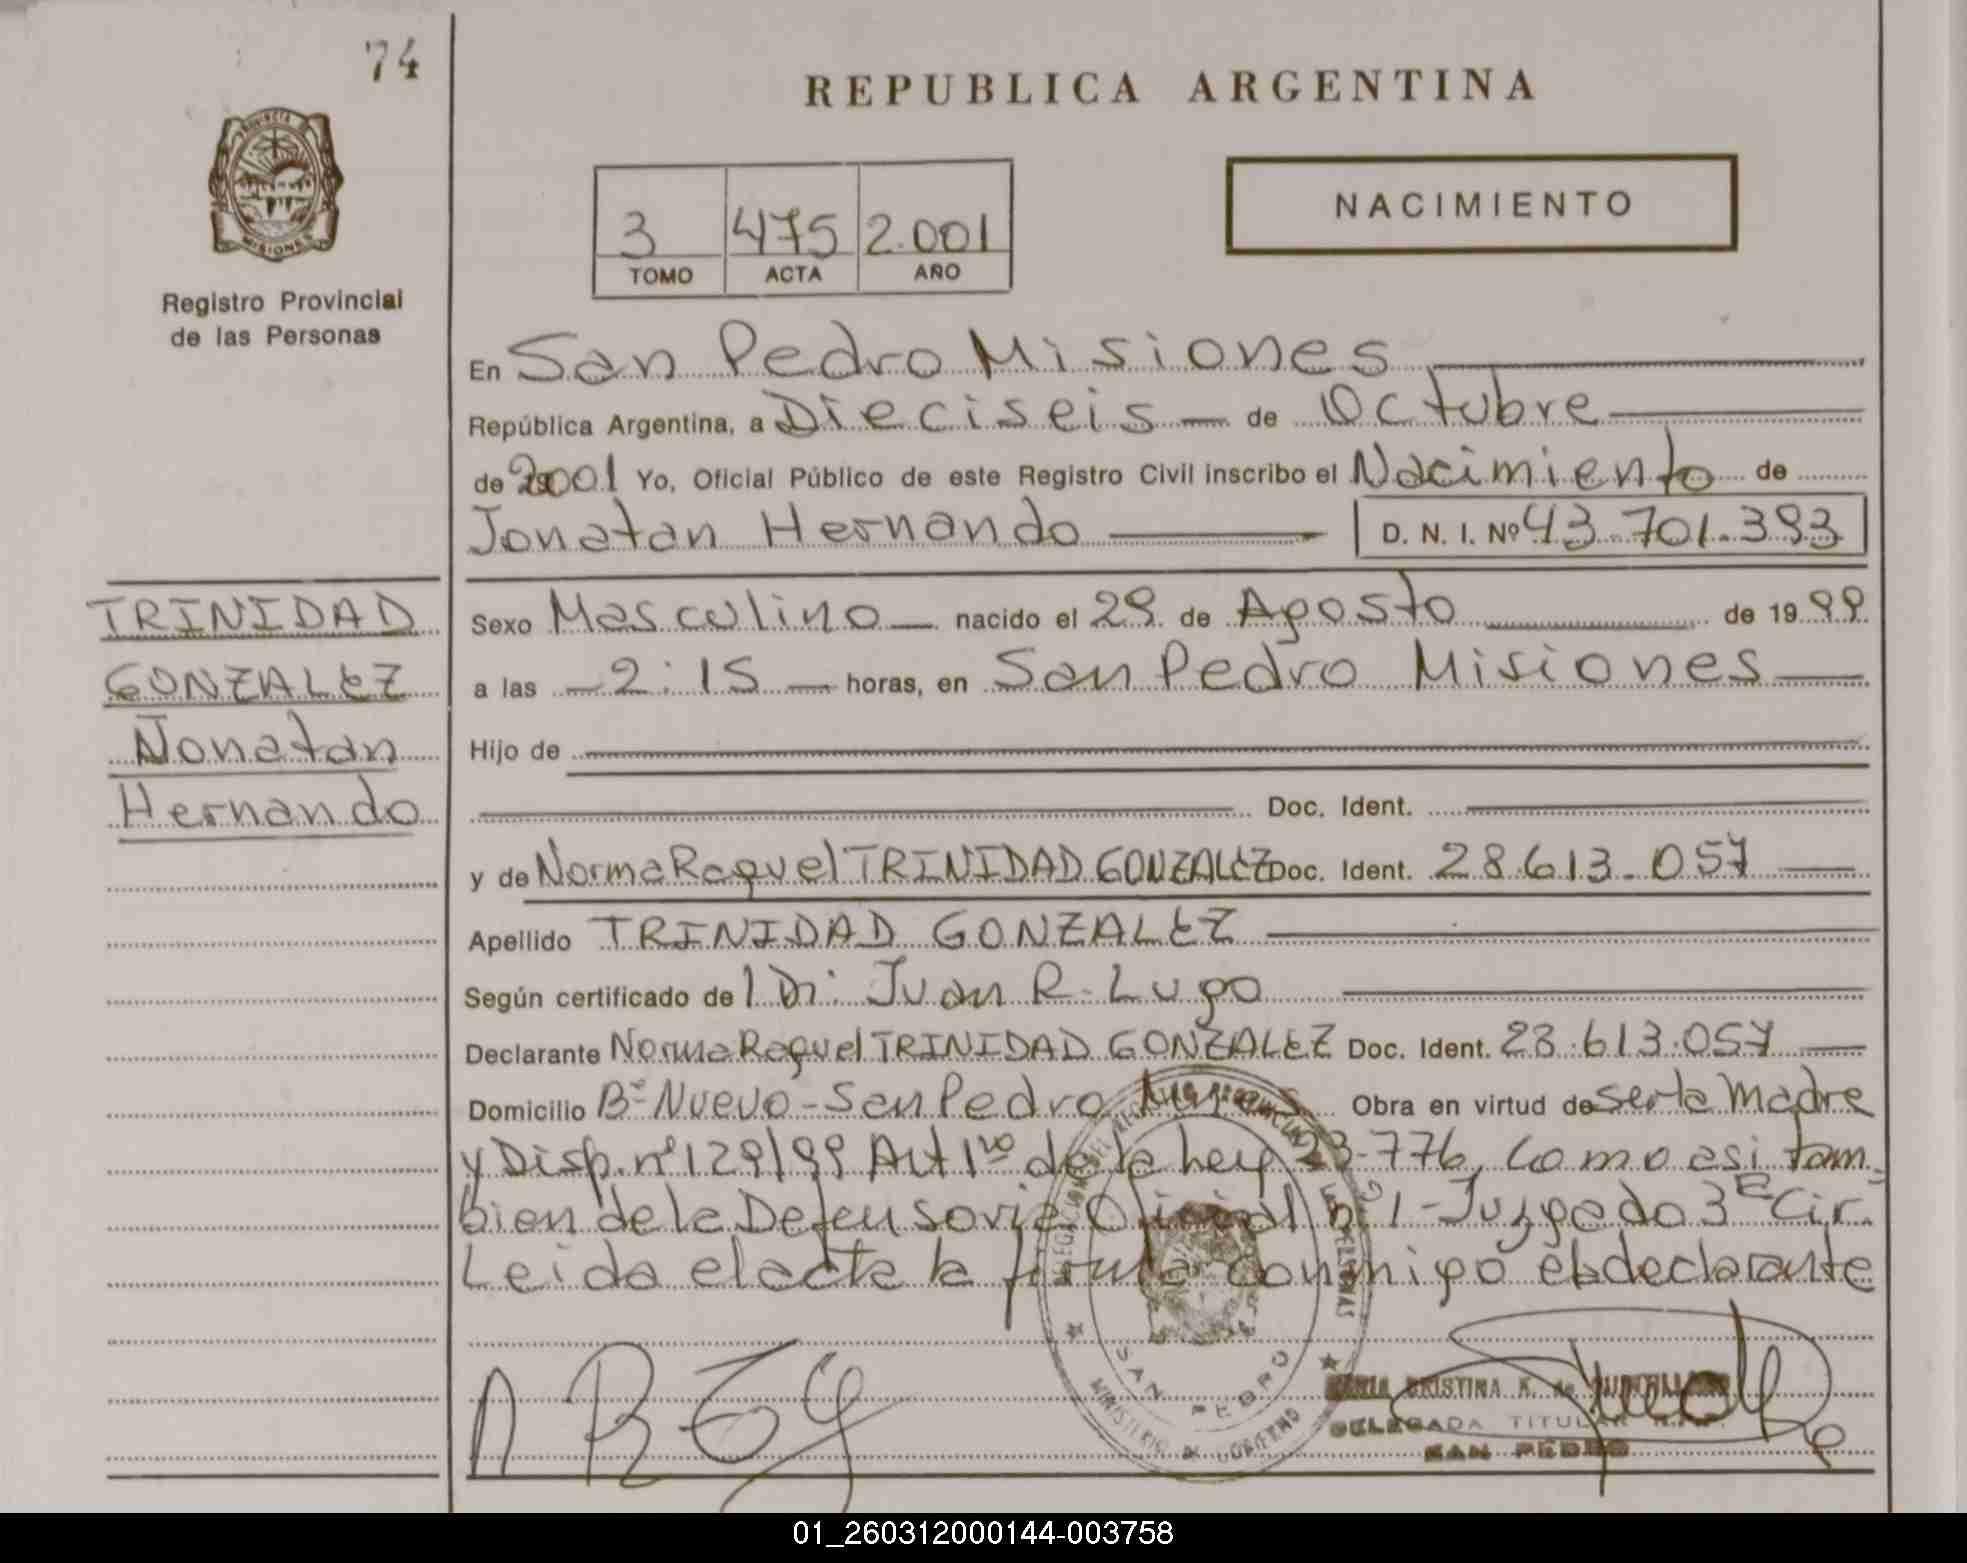 74
REPUBLICA ARGENTINA
PROVINCIA DE
MISIONES
Registro Provincial
de las Personas
3 475 2.001
TOMO ACTA AÑO
NACIMIENTO
En San Pedro Misiones
República Argentina, a Dieciseis de Octubre
de 2001 Yo, Oficial Público de este Registro Civil inscribo el Nacimiento de
Jonatan Hernando D. N. I. Nº 43.701.393
TRINIDAD
GONZALEZ
Jonatan
Hernando
Sexo Masculino nacido el 29 de Agosto de 1999
a las 2:15 horas, en San Pedro Misiones
Hijo de
Doc. Ident.
y de Norma Raquel TRINIDAD GONZALEZ Doc. Ident. 28.613.057
Apellido TRINIDAD GONZALEZ
Según certificado de Dr. Juan R. Lugo
Declarante Norma Raquel TRINIDAD GONZALEZ Doc. Ident. 28.613.057
Domicilio Bº Nuevo - San Pedro Mnes Obra en virtud de ser la Madre
y Disp. nº 129/99 Art 1ro de la Ley 23.776, como asi tam-
bien de la Defensoria Oficial nº 1 - Juzgado 3ª Cir.
Leida el acta la firma conmigo el declarante
SAN PEDRO
MINISTERIO DE GOBIERNO
MARIA CRISTINA K. de
DELEGADA TITULAR
SAN PEDRO
01_260312000144-003758